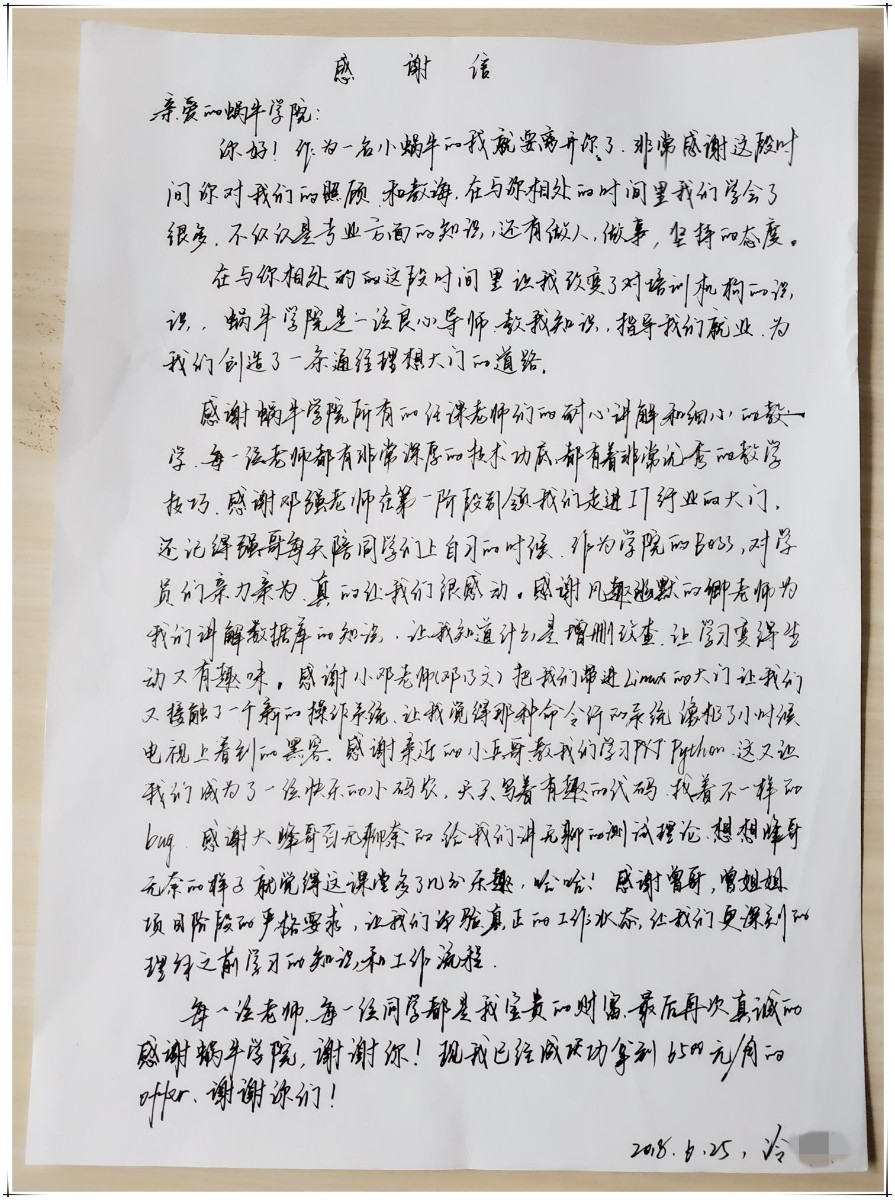 感谢信
亲爱的蜗牛学院:
你好！作为一名小蜗牛的我就要离开你了.非常感谢这段时
间你对我们的照顾.和教诲,在与你相处的时间里我们学会了
很多.不仅仅是专业方面的知识,还有做人,做事,坚持的态度。
在与你相处的的这段时间里让我改变了对培训机构的认
识,蜗牛学院是一位良心导师教我知识,指导我们就业.为
我们创造了一条通往理想大门的道路.
感谢蜗牛学院所有的任课老师们的耐心讲解和细小的教
学.每一位老师都有非常深厚的技术功底.都有着非常优秀的教学
技巧.感谢邓强老师在第一阶段引领我们走进IT行业的大门.
还记得强哥每天陪同学们上自习的时候.作为学院的Boss,对学
员们亲力亲为.真的让我们很感动。感谢风趣幽默的卿老师为
我们讲解数据库的知识.让我知道什么是增删改查.让学习变得生
动又有趣味。感谢小邓老师(邓乃文)把我们带进Linux的大门让我们
又接触了一个新的操作系统.让我觉得那种命令行的系统像极了小时候
电视上看到的黑客.感谢亲近的小兵哥教我们学习Python.这又让
我们成为了一位快乐的小码农.天天写着有趣的代码.找着不一样的
bug.感谢大峰哥百无聊奈的给我们讲无聊的测试理论.想想峰哥
无奈的样子就觉得这课堂多了几分乐趣,哈哈！感谢曾哥,曾姐姐
项目阶段的严格要求,让我们体验真正的工作状态,让我们更深刻的
理解之前学习的知识和工作流程.
每一位老师.每一位同学都是我宝贵的财富.最后再次真诚的
感谢蜗牛学院,谢谢你！现我已经成功拿到6500元/月的
offer.谢谢你们！
2018.6.25,冷